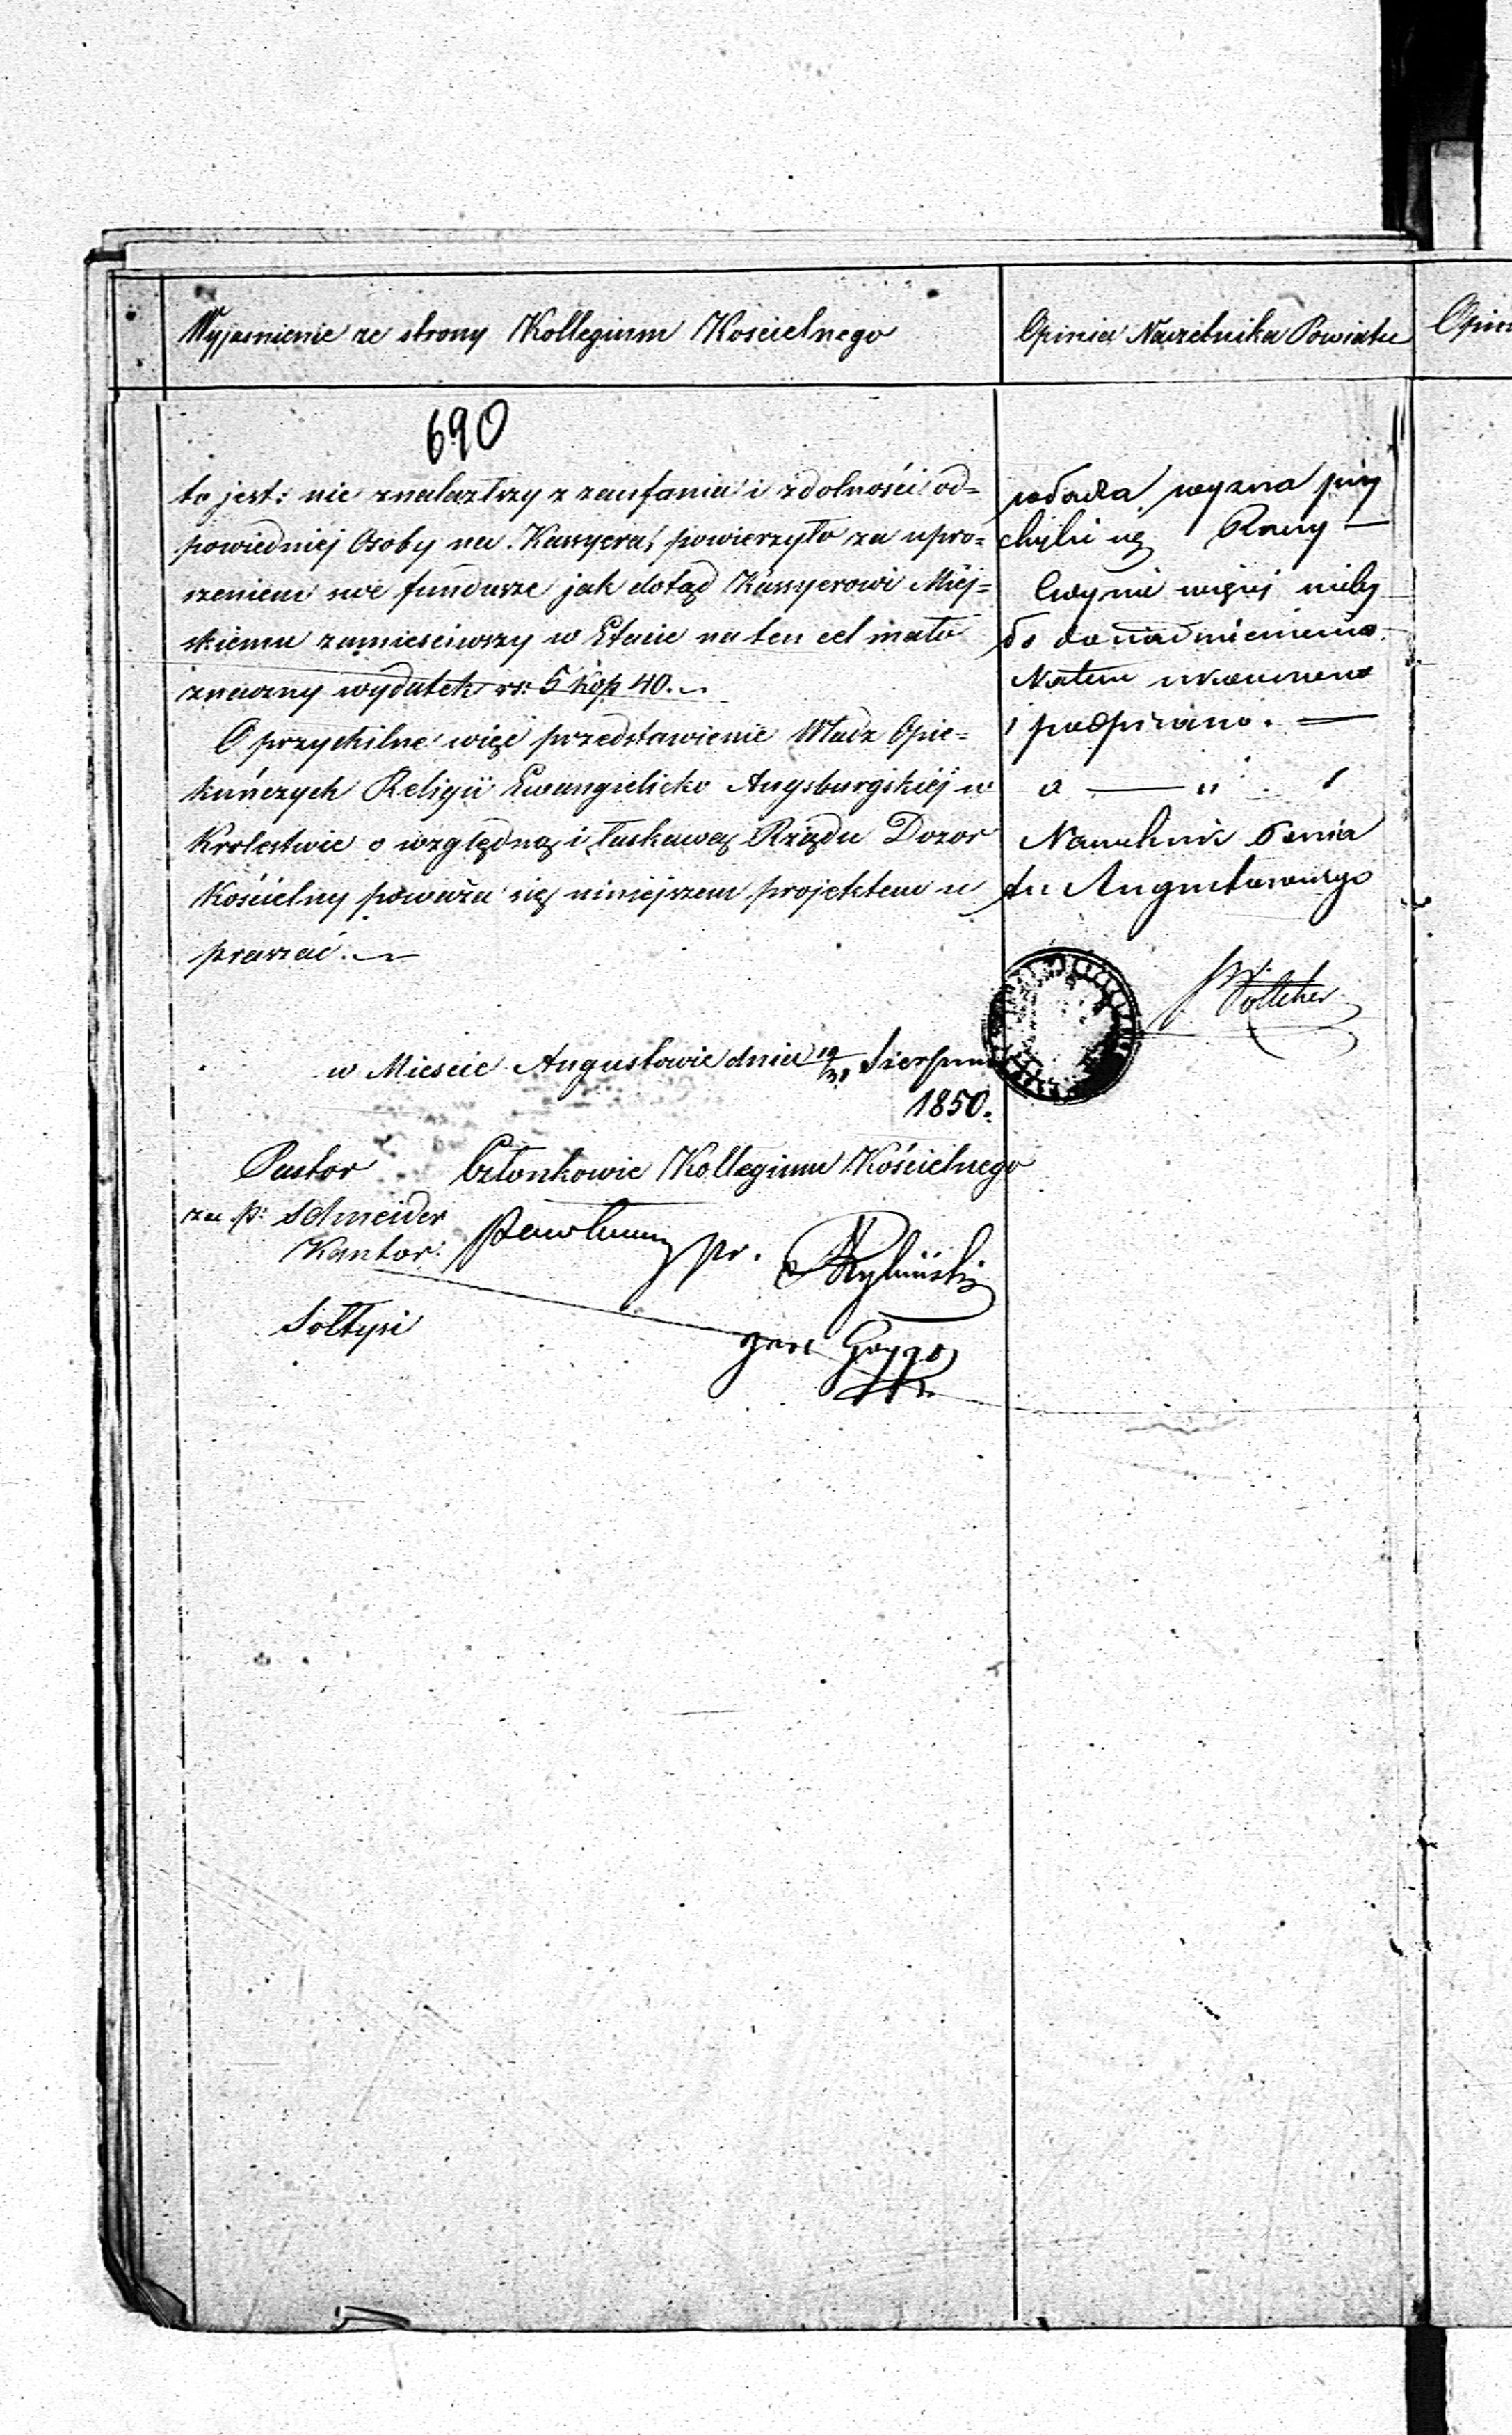 Wyjasnienie ze strony Kollegium Koscielnego
Opinia Naczelnika Powiatu
Opin
690
to jest: nie znalazłszy z zaufania i zdolności od=
powiedniej Osoby na Kassyera, powierzyło za upro=
szeniem swe fundusze jak dotąd Kassyerowi Miej=
skiemu zamieściwszy w Etacie na ten cel mało
znaczny wydatek rs: 5 kop 40.
O przychilne więc przedstawienie Władz Opie=
kuńczych Religii Ewangielicko Augsburgskiéj w
Krolestwie o względną i łaskawą Rządu Dozor
Kościelny poważa się niniejszem projektem u
praszać.
w Miescie Augustowie dnia 19/31 Sierpnia
1850.
Pastor Członkowie Kollegium Kościelnego
za p: Schneider
Kantor.
pr. Rybiński
Sołtysi
wyzna przy
chylić się
więcej
do nadmienienia
Na tem
i podpisano.
Naczelnik Powia
tu Augustowskiego